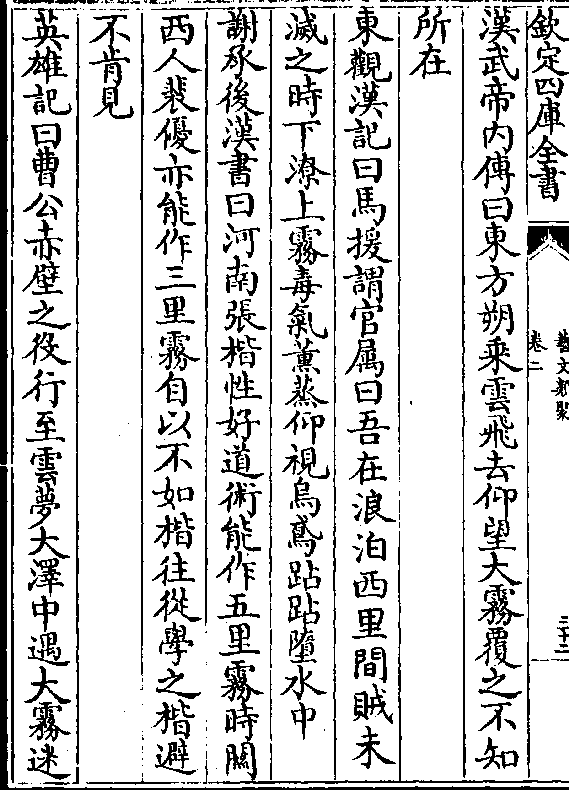 欽定四庫全書
藝文類聚
卷二
三十二
漢武帝內傳曰東方朔乘雲飛去仰望大霧覆之不知
所在
東觀漢記曰馬援謂官属曰吾在浪泊西里間賊未
滅之時下潦上霧毒氣薰蒸仰視烏鳶跕跕墮水中
謝承後漢書曰河南張楷性好道術能作五里霧時關
西人裴優亦能作三里霧自以不如楷往從學之楷避
不肯見
英雄記曰曹公赤壁之役行至雲夢大澤中遇大霧迷